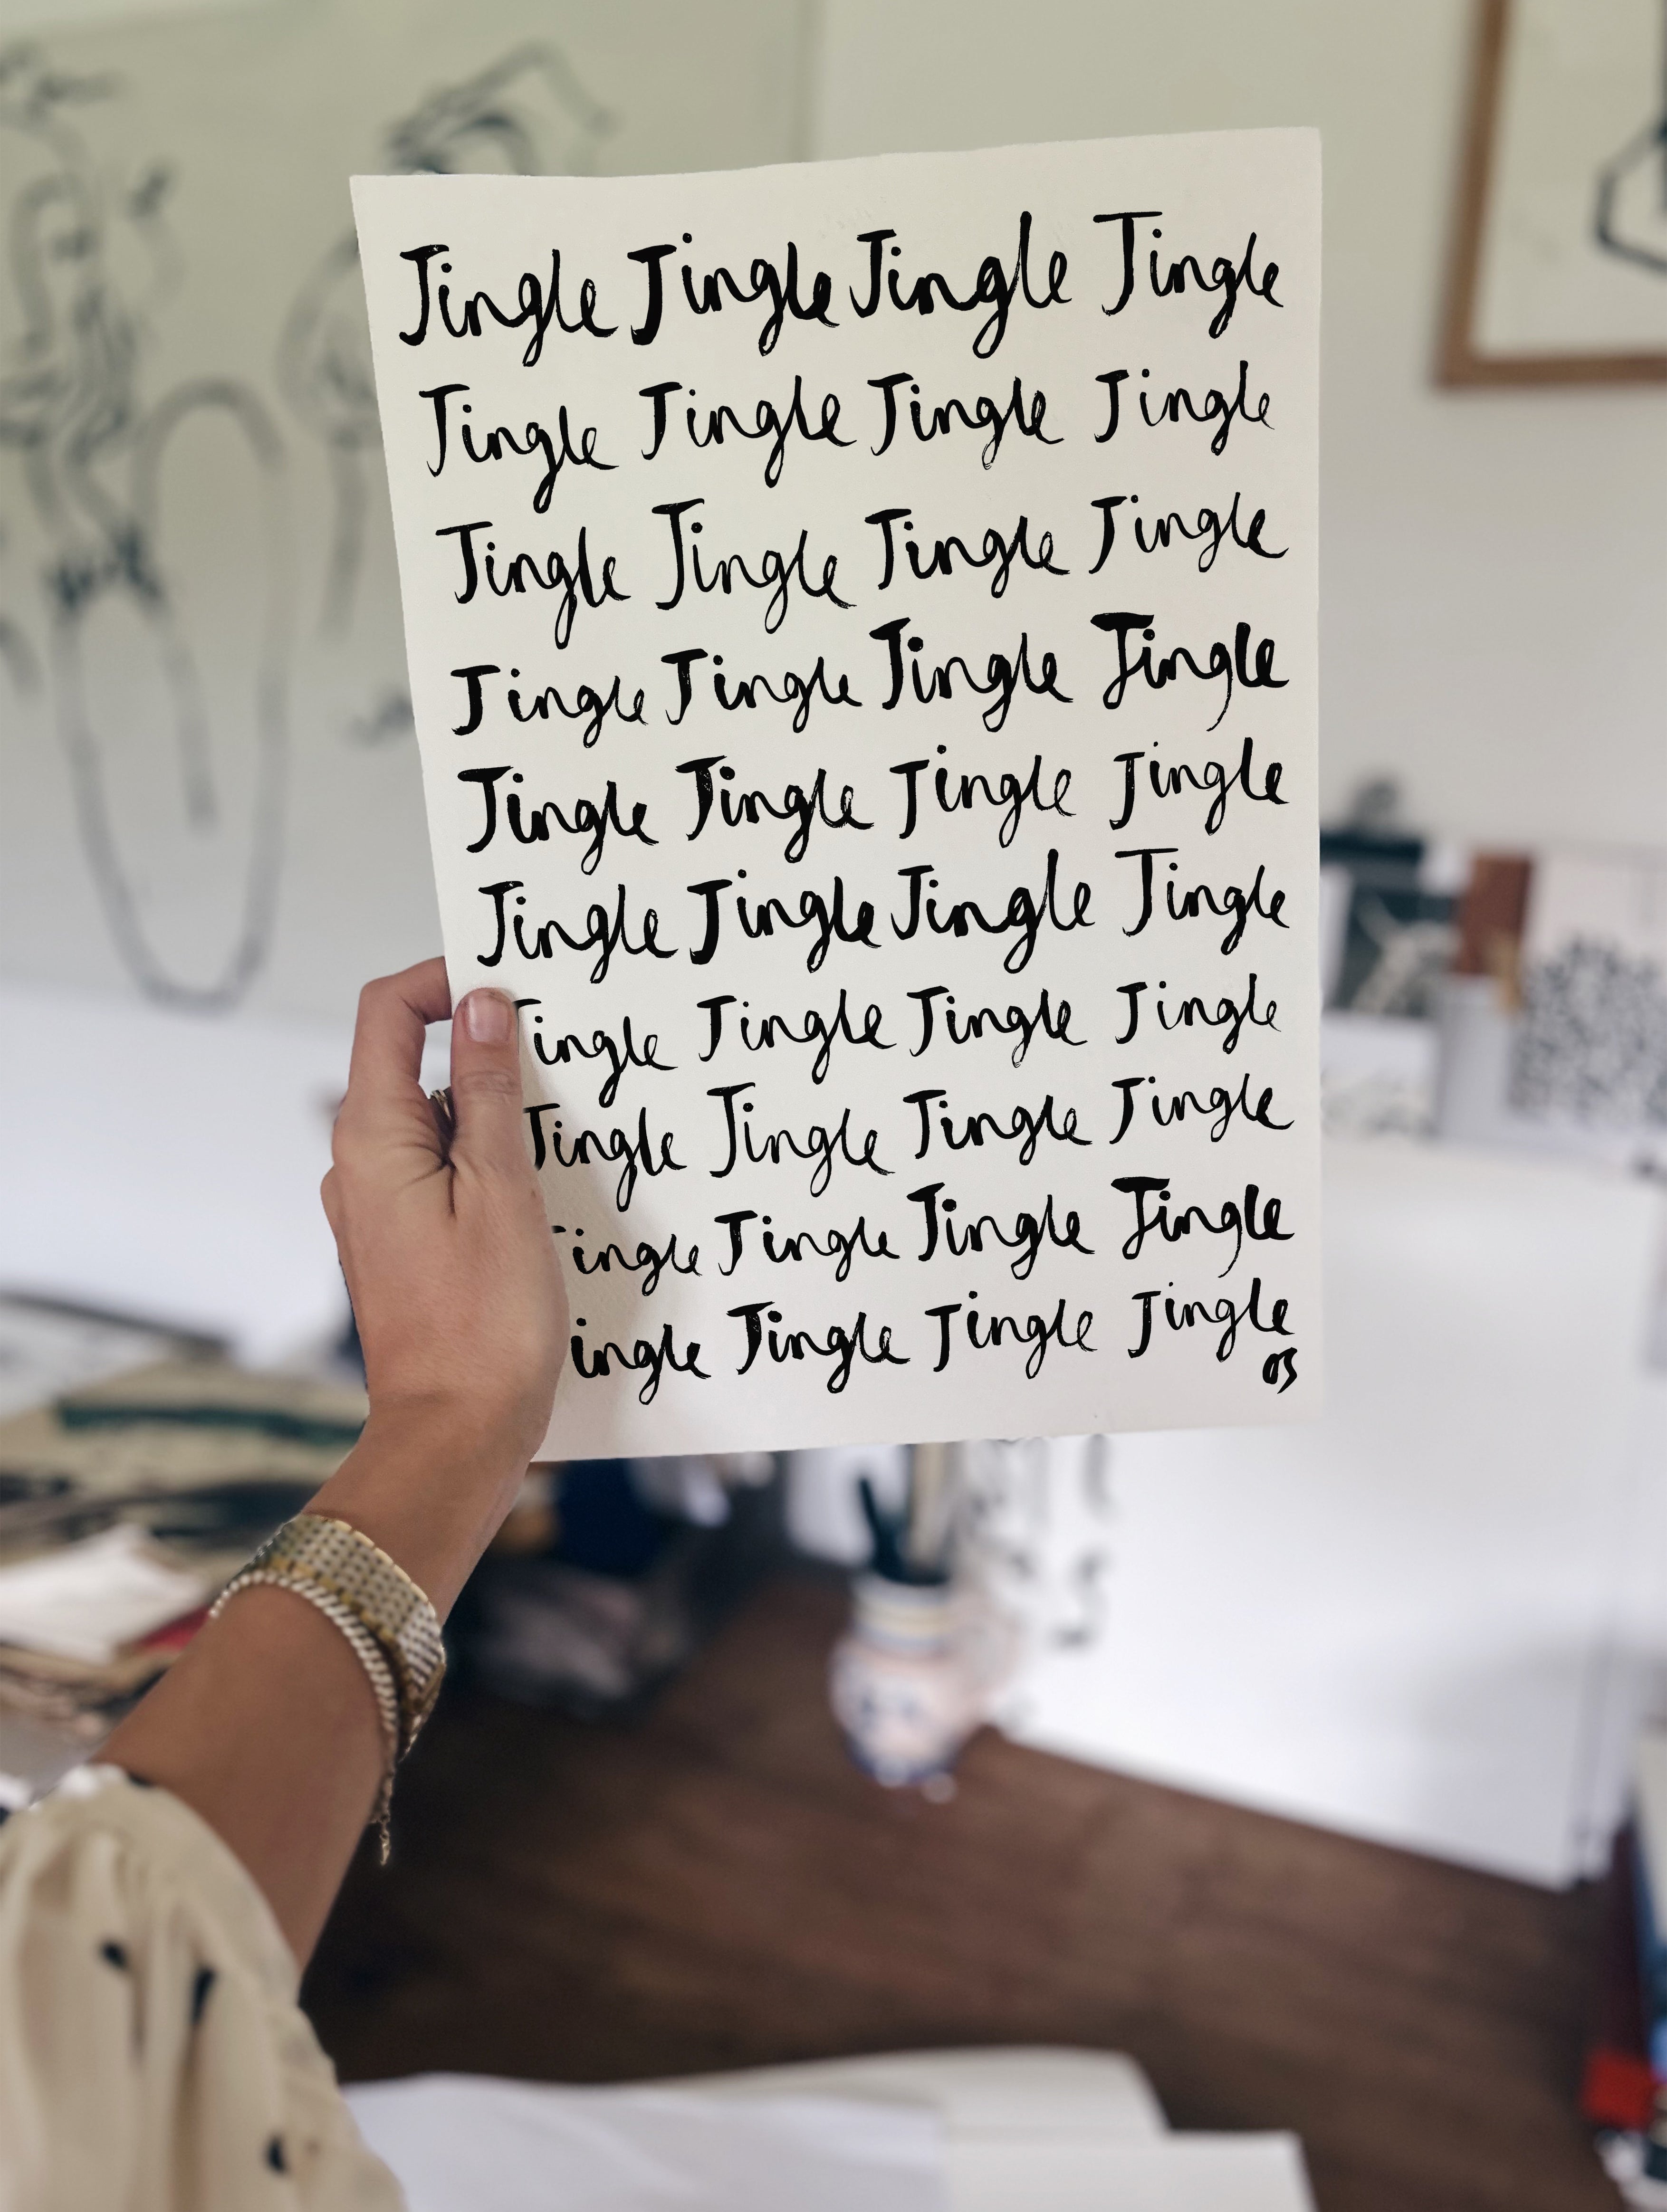 Jingle Jingle Jingle Jingle
Jingle Jingle Jingle Jingle
Jingle Jingle Jingle Jingle
Jingle Jingle Jingle Jingle
Jingle Jingle Jingle Jingle
Jingle Jingle Jingle Jingle
Jingle Jingle Jingle Jingle
Jingle Jingle Jingle Jingle
ingle Jingle Jingle Jingle
ingle Jingle Jingle Jingle